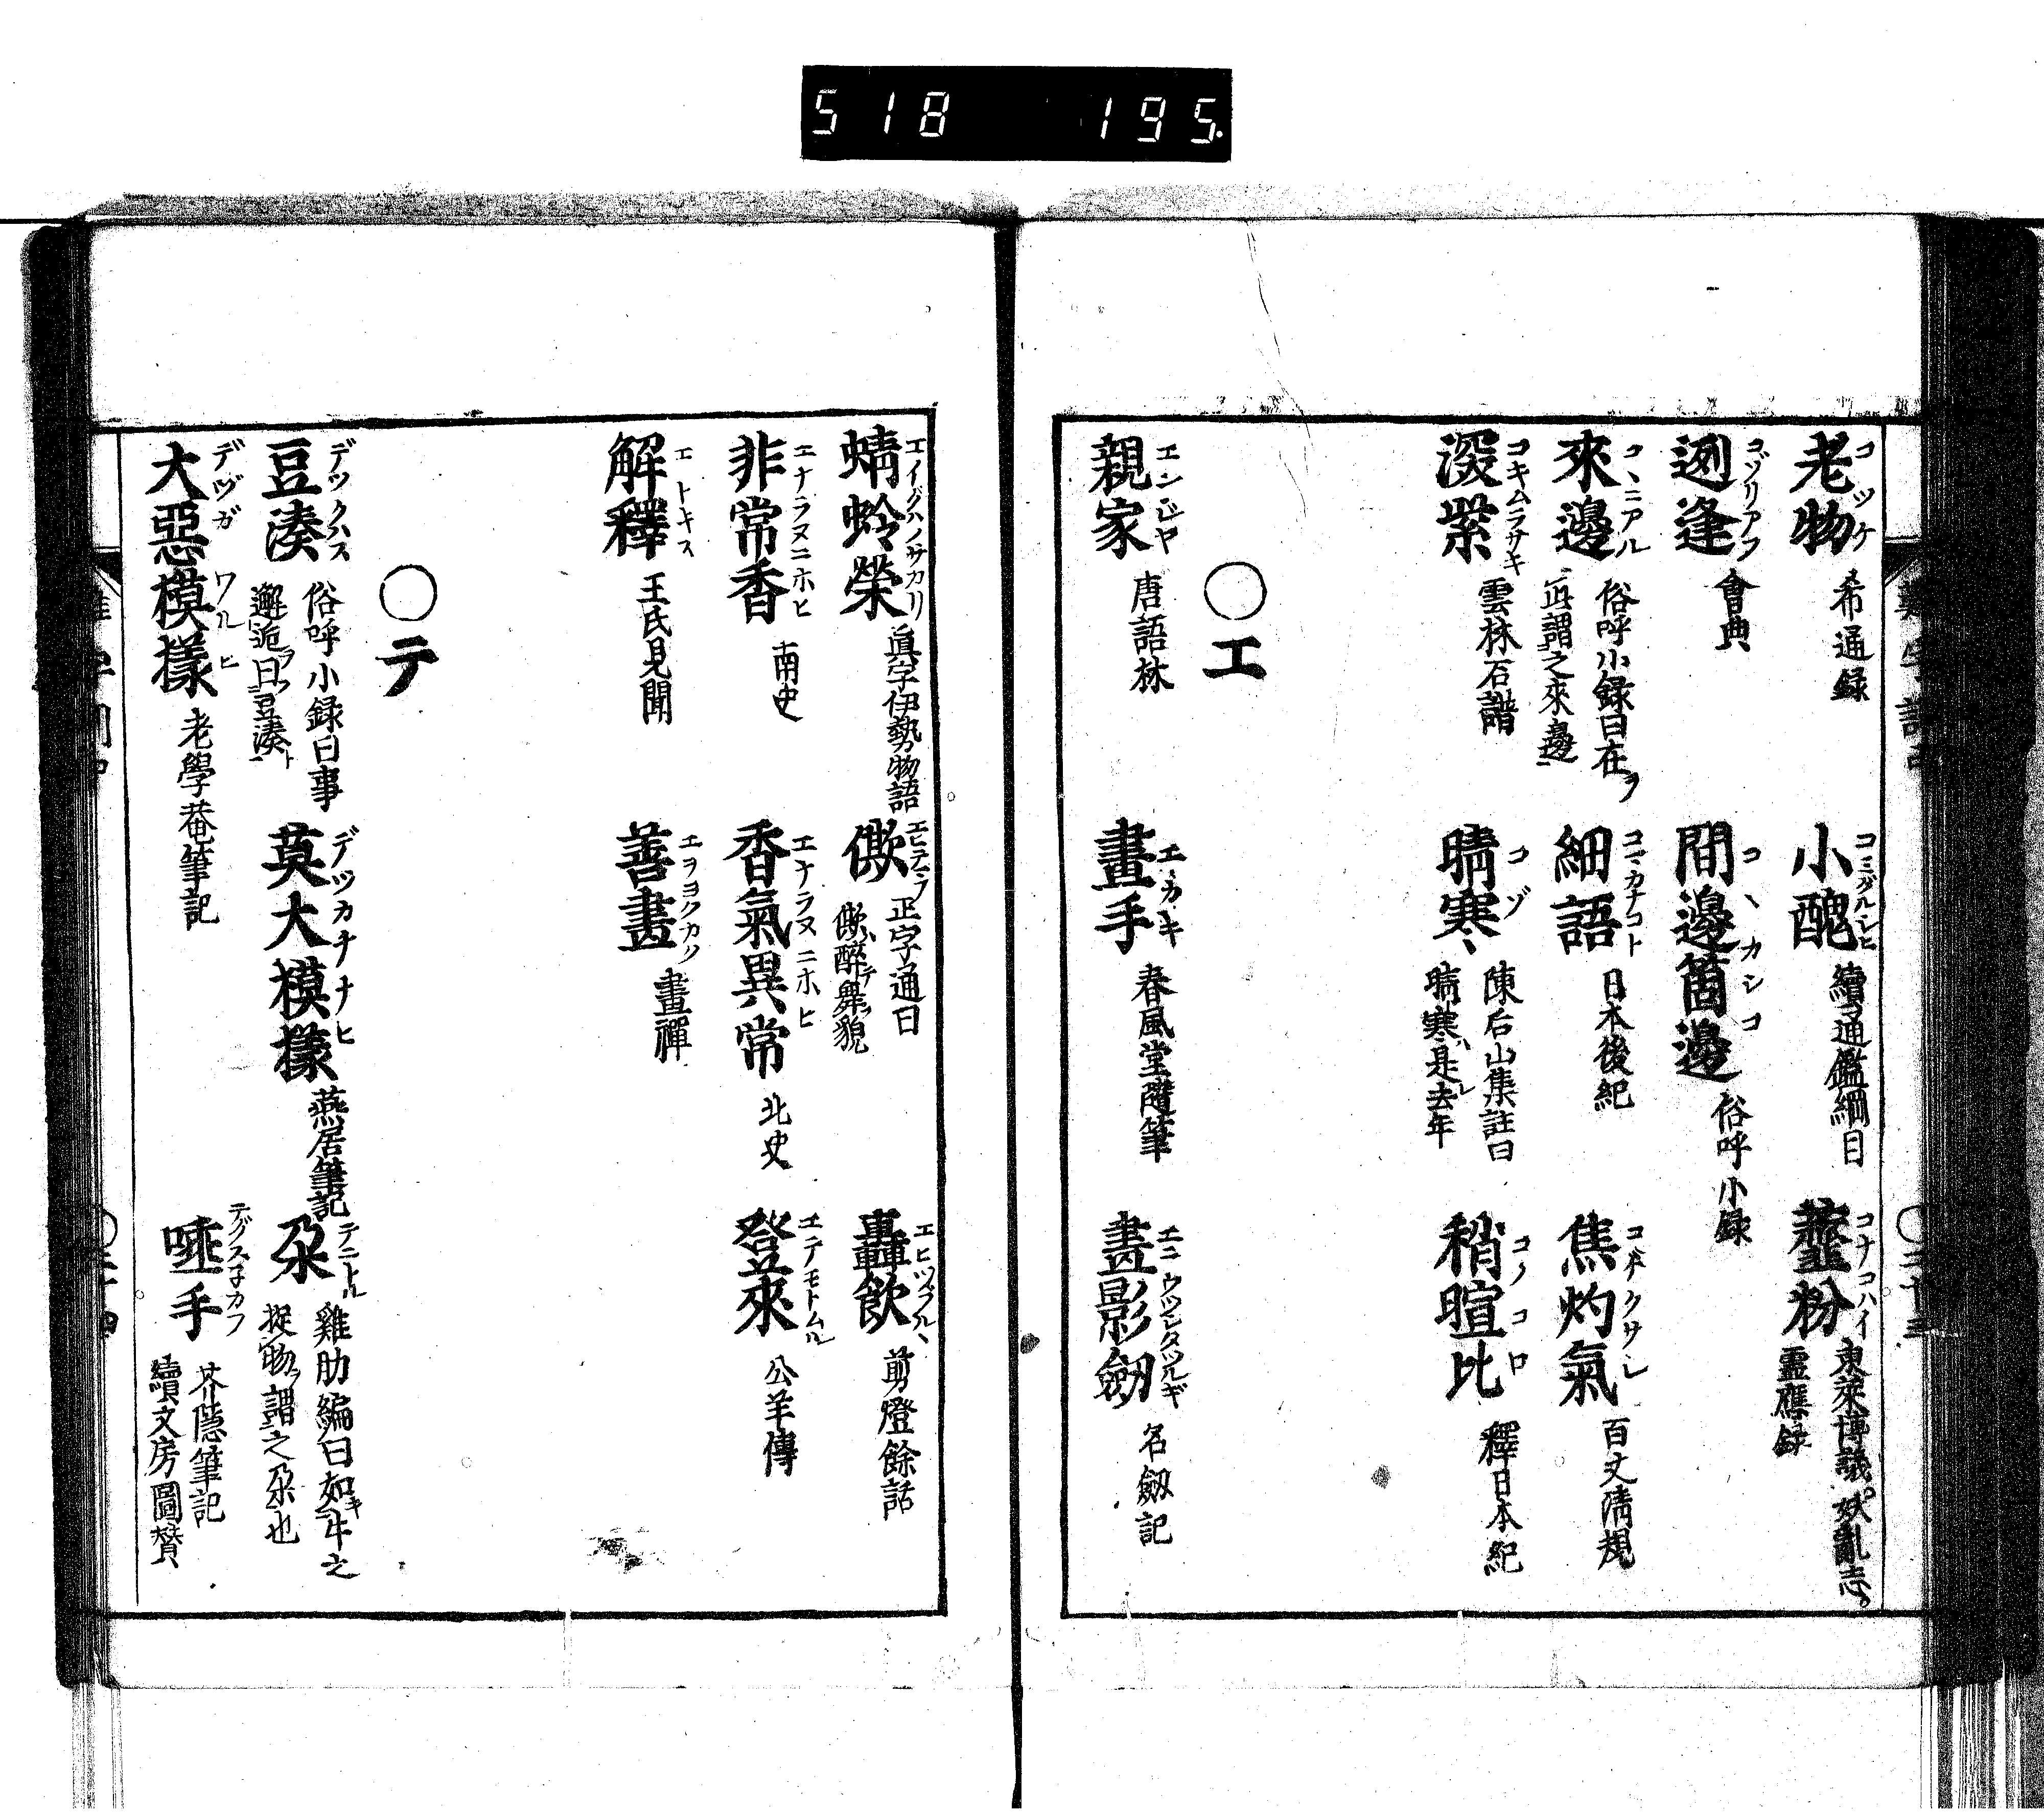 518 195
老物 コツケ 希通録
小醜 コミグルシヒ 續通鑑綱目
虀粉 コナコハイ 東萊博議。妖亂志。靈應録
迾逢 コゾリアフ 會典
間邊箇邊 コヽカシコ 俗呼小録
來邊 コヽニアル 俗呼小録曰在ヲ此謂之來邊
細語 コマカナコト 日本後紀
焦灼氣 コガレクサレ 百丈清規
深紫 コキムラサキ 雲林石譜
晴寒 コゾ 陳后山集註曰晴寒ハ是レ去年
稍暄比 コノコロ 釋日本紀
〇エ
親家 エンジヤ 唐語林
畫手 エカキ 春風堂隨筆
畫影劒 エニウツシタツルギ 名劒記
蜻蛉榮 エイグハノサカリ 眞字伊勢物語
僛 エヒテラ 正字通曰僛ハ醉テ舞フ貌
轟飲 エヒツブルヽ 剪燈餘話
非常香 エナラヌニホヒ 南史
香氣異常 エナラヌニホヒ 北史
登來 エテモトムル 公羊傳
解釋 エトキス 王氏見聞
善畫 エヲヨクカク 畫禪
〇テ
豆湊 デツクハス 俗呼小録曰事邂逅曰フ豆湊ト
莫大模樣 デツカチナヒ 燕居筆記
朶 テニトル 雞肋編曰如キ牛之捉物ヲ謂之朶也
大惡模樣 デヅガワルヒ 老學菴筆記
唾手 テグスネカフ 芥隱筆記 續文房圖贊